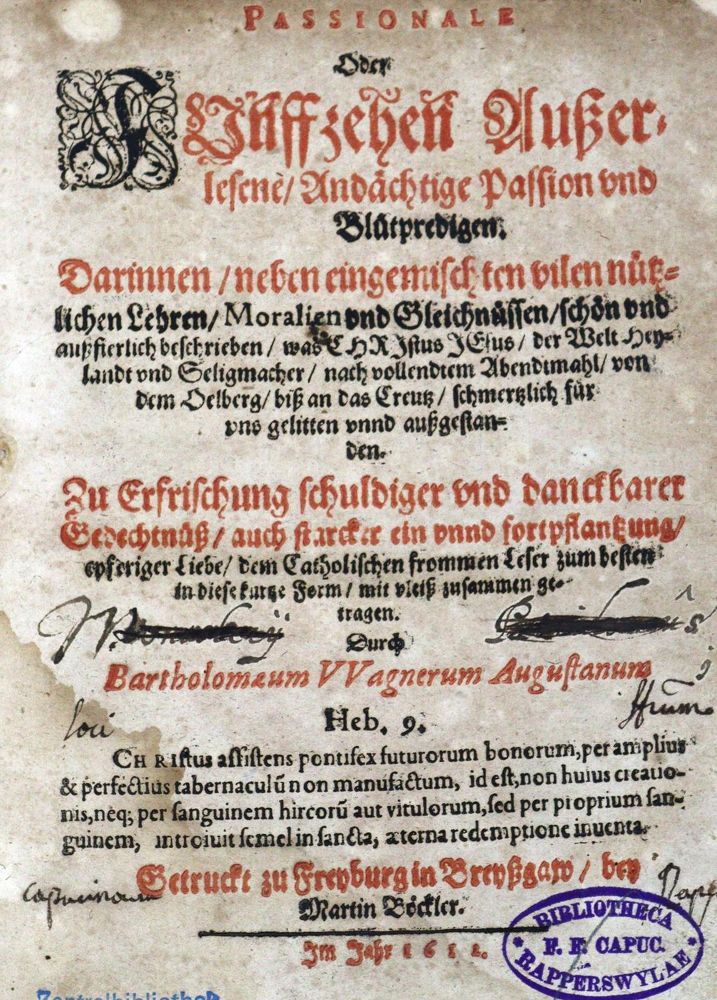 PASSIONALE
Oder
FÜnffzehen Außer-
lesene/ Andächtige Passion vnd
Blůtpredigen.
Darinnen / neben eingemischten vilen nütz-
lichen Lehren/ Moralien vnd Gleichnüssen/schön vnd
außfierlich beschrieben / was CHRIstus JEsus / der Welt Hey-
landt vnd Seligmacher / nach vollendtem Abendtmahl/ von
dem Oelberg/ biß an das Creutz / schmertzlich für
vns gelitten vnnd außgestan-
den.
Zu Erfrischung schuldiger vnd danckbarer
Gedechtnüß / auch starcker ein vnnd fortpflantzung/
eyferiger Liebe/ dem Catholischen frommen Leser zum besten
in diese kurtze Form / mit vleiß zusammen ge-
tragen.
Durch
Bartholomæum VVagnerum Augustanum
loci
Heb. 9.
CHRIstus assistens pontifex futurorum bonorum, per amplius
& perfectius tabernaculũ non manufactum, id est, non huius creatio-
nis, neq; per sanguinem hircorũ aut vitulorum, sed per proprium san-
guinem, introiuit semel in sancta, æterna redemptione inuenta.
Capucinorum
Getruckt zu Freyburg in Breyßgaw / bey
Martin Böckler.
Im Jahr
BIBLIOTHECA
F. F. CAPUC.
RAPPERSWYLAE
Zentralbibliothek